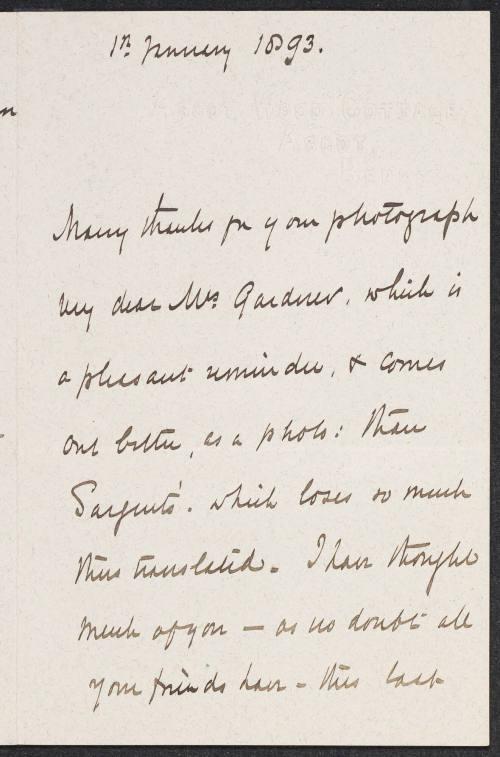 1st January 1893.
Many thanks for your photograph
my dear Mrs Gardner, which is
a pleasant reminder, & comes
out better, as a photo: than
Sargents'. which loses so much
thus translated. I have thought
much of you — as no doubt all
your friends have - this last